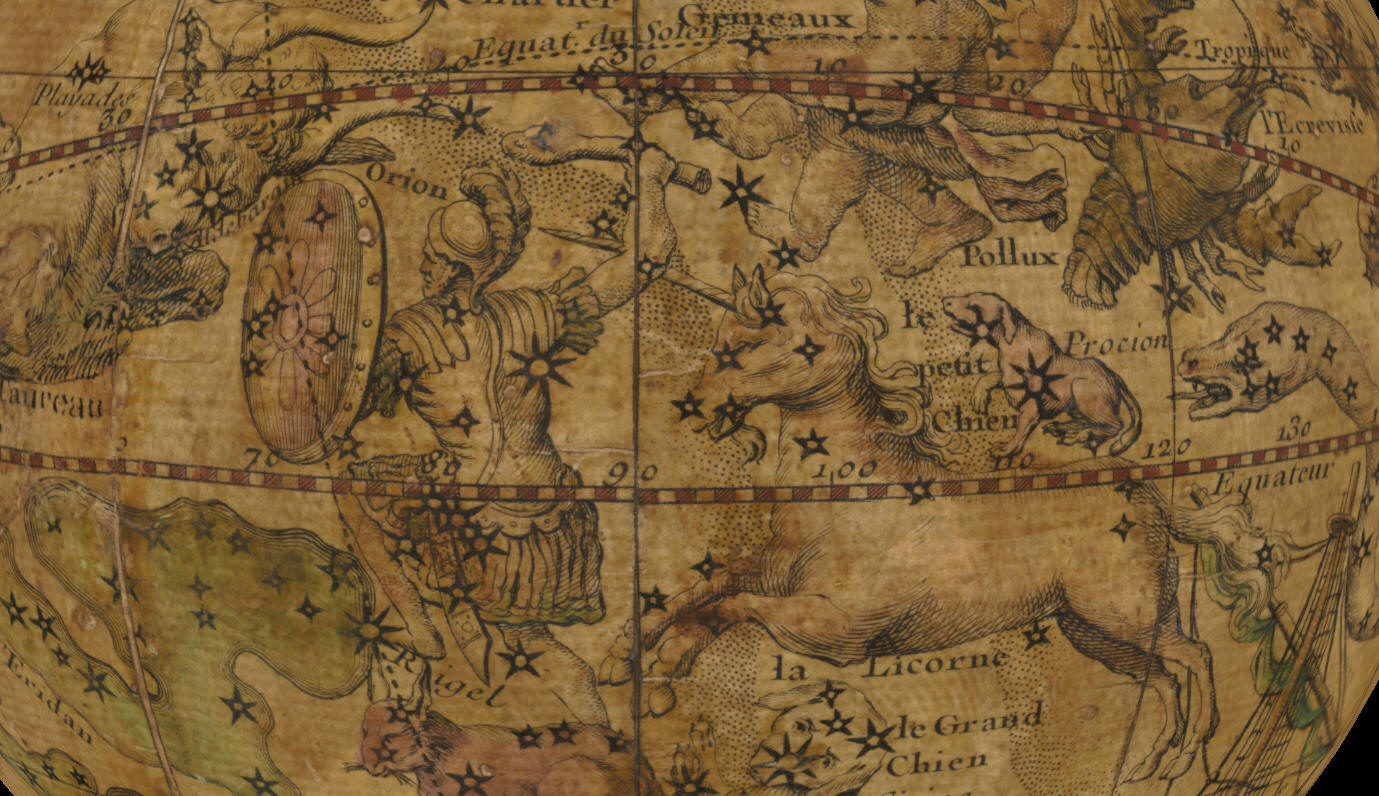 Gemeaux
Equat.r du Soleil
Tropique
10
20
Playades
30
l'Ecrevisse
10
Orion
Pollux
le
petit
Chien
Procion
Taureau
70
80
90
100
110
120
130
Equateur
Rigel
la Licorne
le Grand
Chien
Eridan